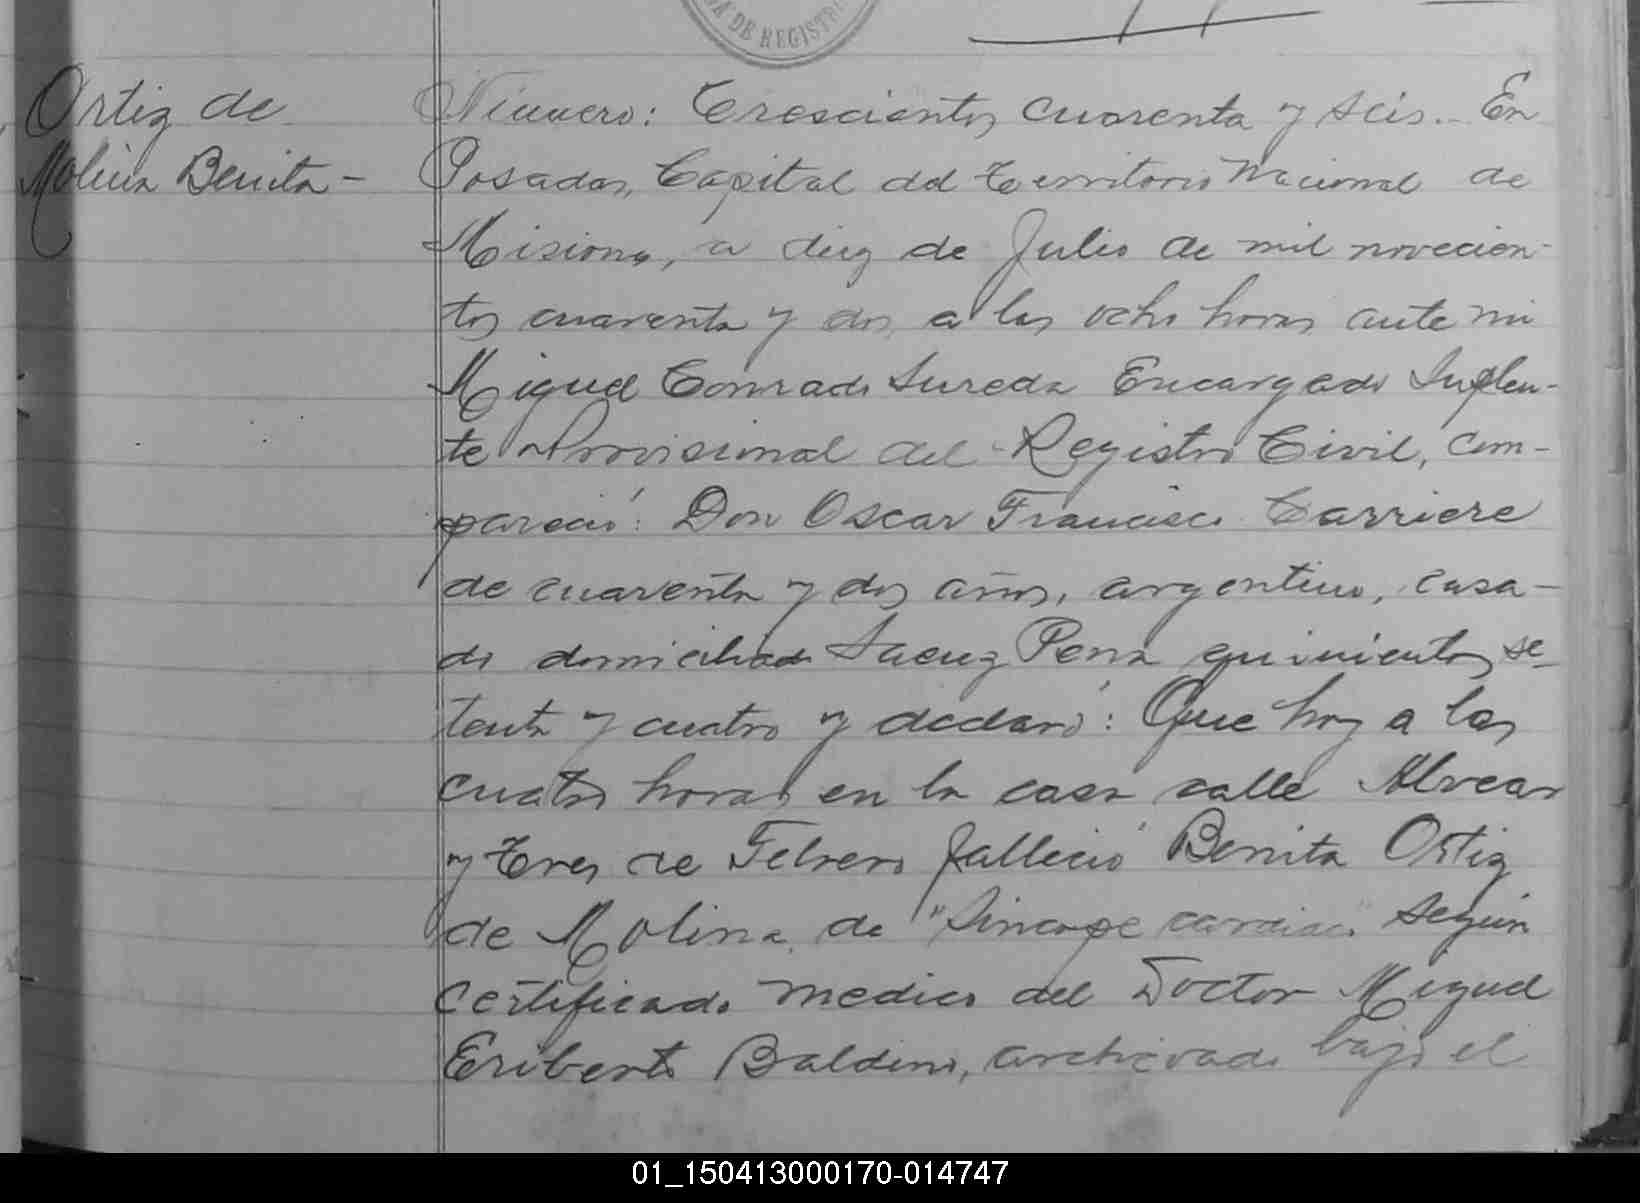 DA DE REGISTR
Ortiz de
Molina Benita -
Número: Trescientos cuarenta y seis.- En
Posadas, Capital del Territorio Nacional de
Misiones, a diez de Julio de mil novecien-
tos cuarenta y dos, a las ocho horas ante mi
Miguel Conrado Sureda Encargado Suplen-
te Provisional del Registro Civil, com-
pareció: Don Oscar Francisco Carriere
de cuarenta y dos años, argentino, casa-
do domiciliado Saenz Peña quinientos se-
tenta y cuatro y declaró: Que hoy a las
cuatro horas en la casa calle Alvear
y Tres de Febrero falleció Benita Ortiz
de Molina, de "Sincope cardiaco" según
certificado medico del Doctor Miguel
Eriberto Baldini, archivado bajo el
01_150413000170-014747